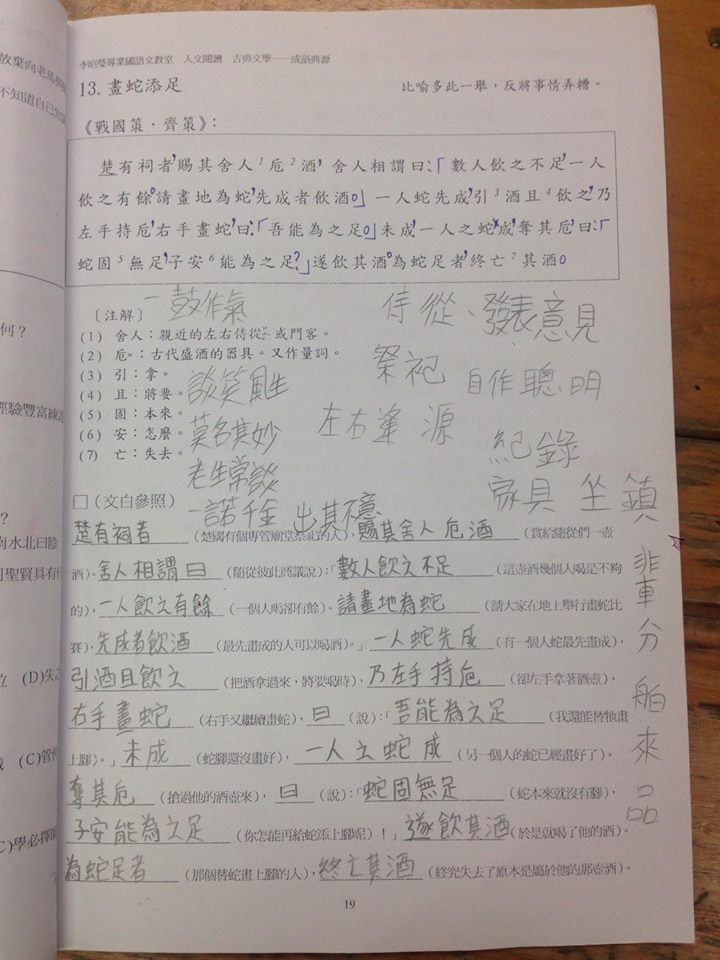 放棄向老馬
不知道自己
何?
經驗豐富
?
南水北曰陰
聖賢具有
立 (D)失之
(C)管
C)學必擇師
李昭瑩專業國語文教室 人文閱讀 古典文學——成語典源
13. 畫蛇添足 比喻多此一舉,反將事情弄糟。
《戰國策.齊策》:
楚有祠者,賜其舍人1卮2酒,舍人相謂曰:「數人飲之不足,一人
飲之有餘。請畫地為蛇,先成者飲酒。」一人蛇先成,引3酒且4飲之,乃
左手持卮,右手畫蛇,曰:「吾能為之足。」未成,一人之蛇成,奪其卮曰:「
蛇固5無足,子安6能為之足?」遂飲其酒。為蛇足者,終亡7其酒。
[注解] 一鼓作氣 侍從、發表意見
(1) 舍人:親近的左右侍從或門客。
(2) 卮:古代盛酒的器具。又作量詞。
祭祀 自作聰明
(3) 引:拿。
(4) 且:將要。 談笑風生
(5) 固:本來。 左右逢源
(6) 安:怎麼。 莫名其妙 紀錄
(7) 亡:失去。
老生常談 家具 坐鎮
□(文白參照) 一諾千金 出其不意
楚有祠者(楚國有個專管廟堂祭祀的人),賜其舍人卮酒(賞給隨從們一壺
酒)。舍人相謂曰(隨從彼此商議說):「數人飲之不足(這壺酒幾個人喝是不夠
的),一人飲之有餘(一個人喝卻有餘)。請畫地為蛇(請大家在地上舉行畫蛇比
賽),先成者飲酒(最先畫成的人可以喝酒)。」一人蛇先成(有一個人蛇最先畫成),
引酒且飲之(把酒拿過來,將要喝時),乃左手持卮(卻左手拿著酒壺),
右手畫蛇(右手又繼續畫蛇),曰(說):「吾能為之足(我還能替牠畫
上腳)。」未成(蛇腳還沒畫好),一人之蛇成(另一個人的蛇已經畫好了)。
奪其卮(搶過他的酒壺來),曰(說):「蛇固無足(蛇本來就沒有腳),
子安能為之足(你怎能再給蛇添上腳呢)!」遂飲其酒(於是就喝了他的酒)。
為蛇足者(那個替蛇畫上腳的人),終亡其酒(終究失去了原本是屬於他的那壺酒)。
分
舶來品
19